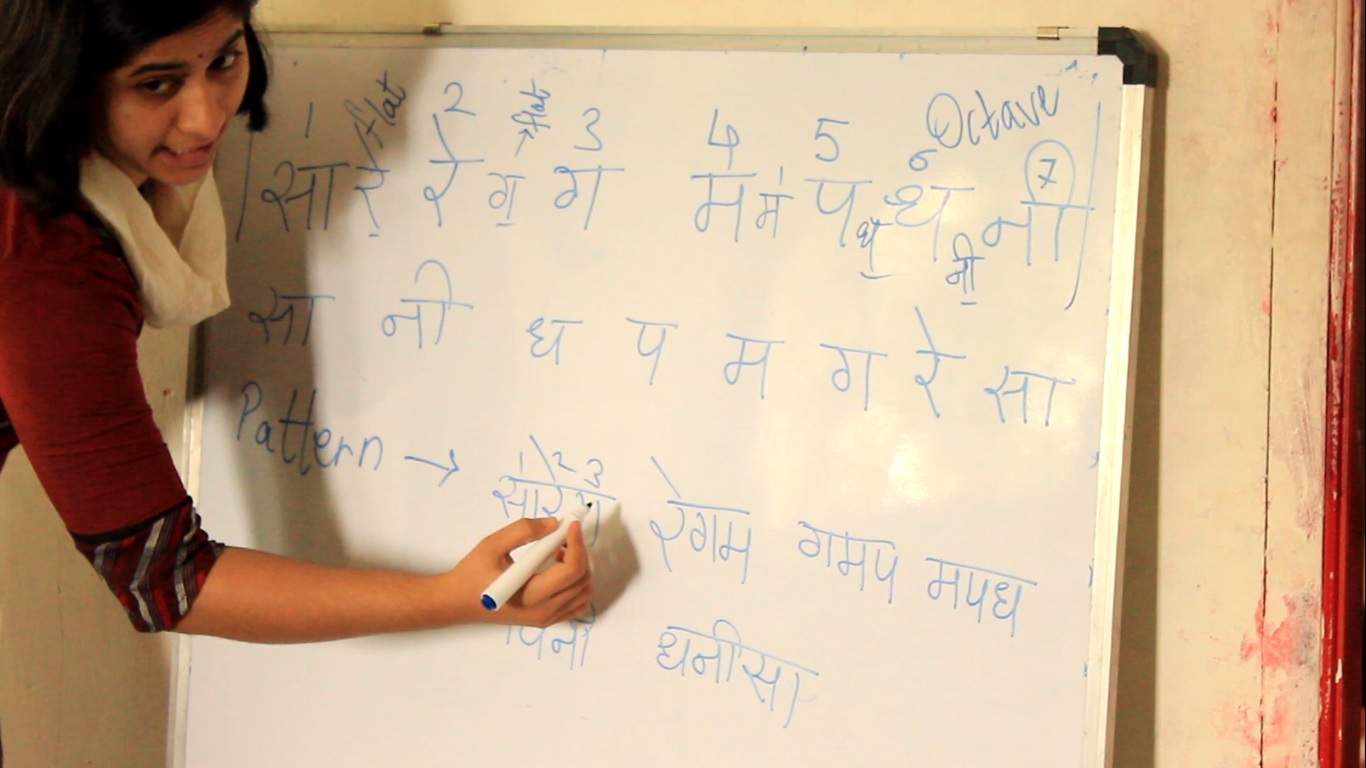 1 flat 2 → flat 3 4 5 6 Octave 7
सा रे॒ रे ग॒ ग म म॑ प ध॒ ध नी॒ नी
सा नी ध प म ग रे सा
Pattern → सारेग रेगम गमप मपध
1 2 3
धनीसा